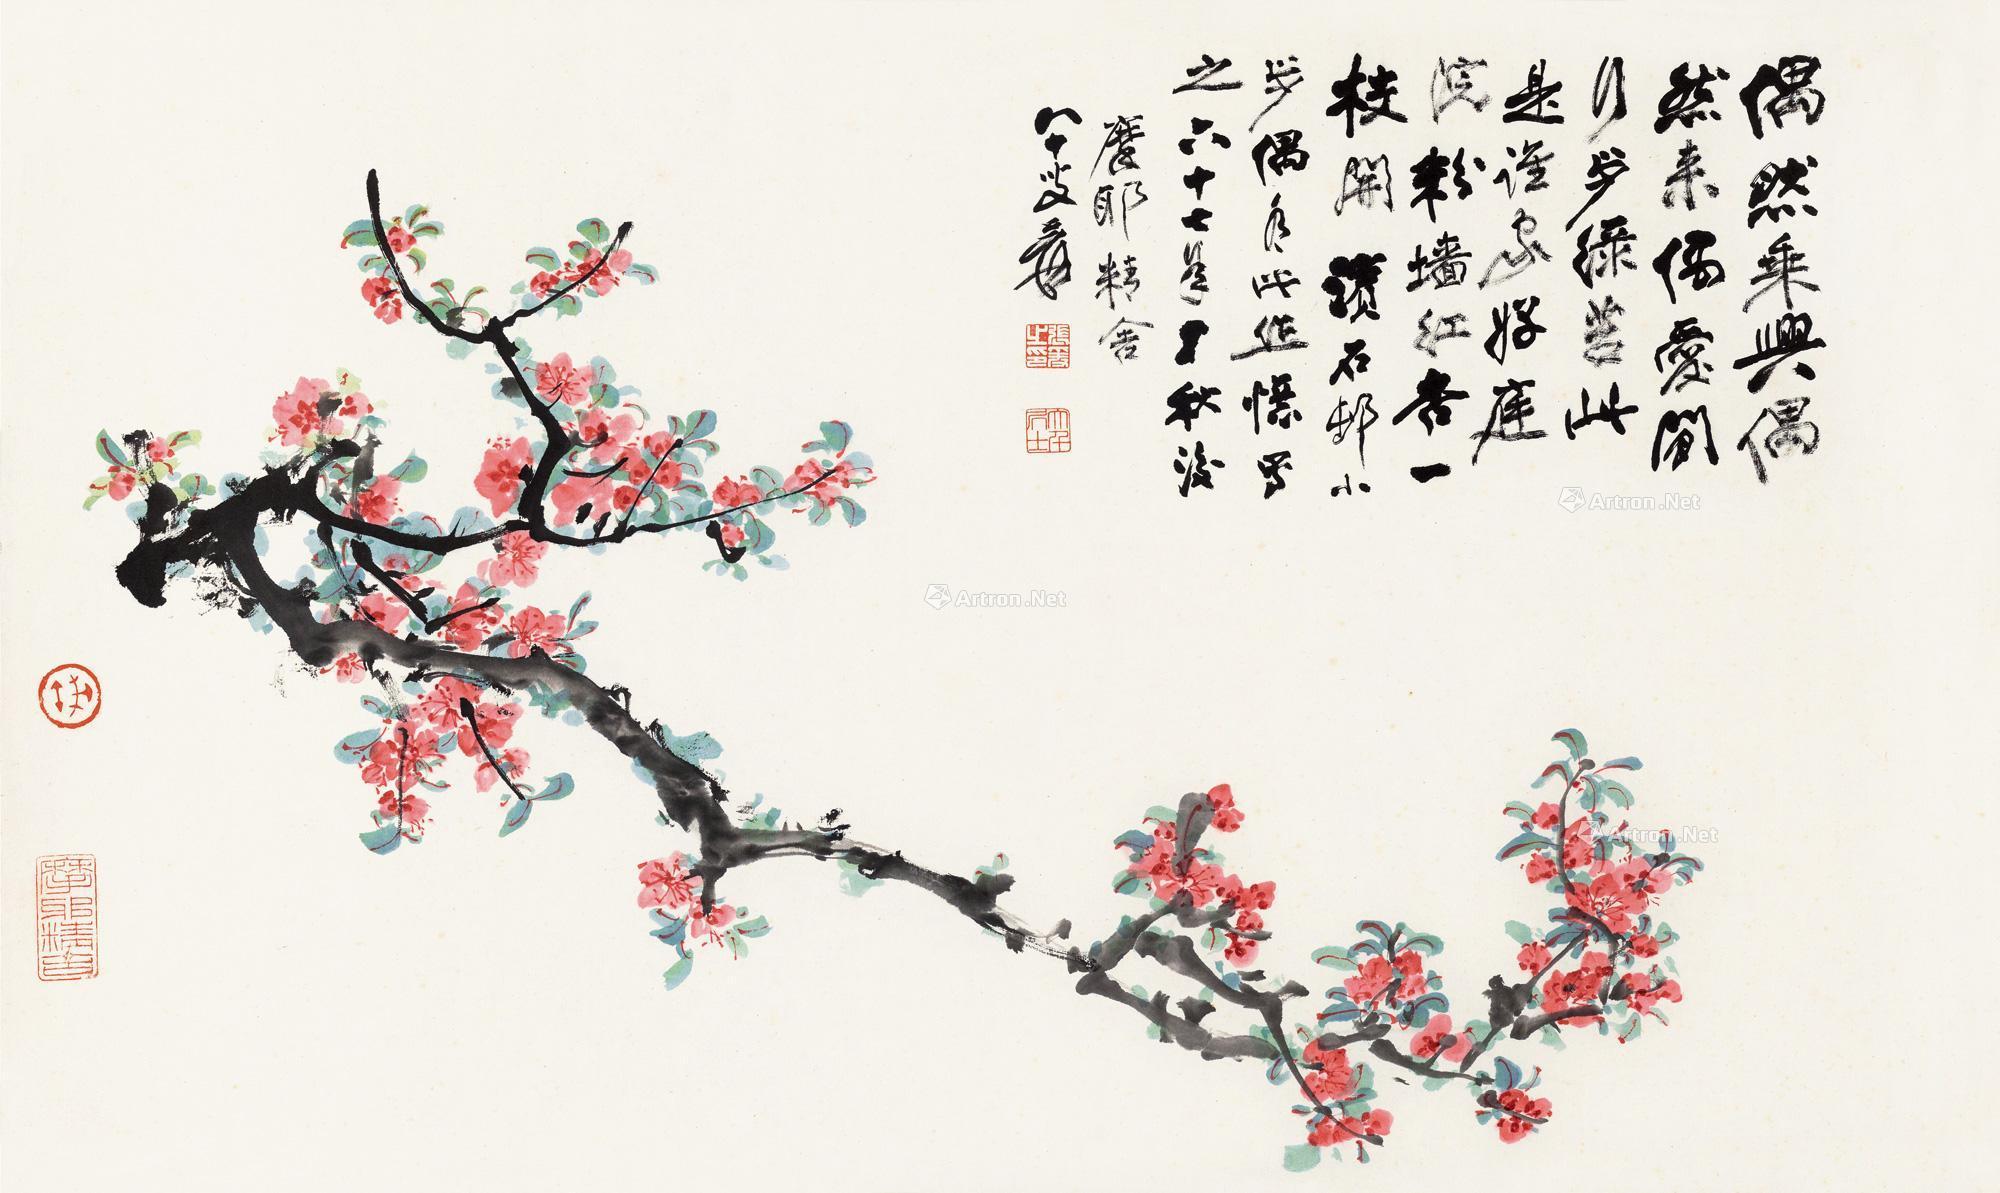 偶然乘興偶
然来偶愛閒
行步綠苔此
是誰家好庭
院粉墻紅杏一
枝開 讀石邨小
步偶有此 寫
之六十七年 秋後
摩耶精舍
八十叟爰
張爰之印
大千居士
摩耶精舍
Artron.Net
Artron.Net
Artron.Net